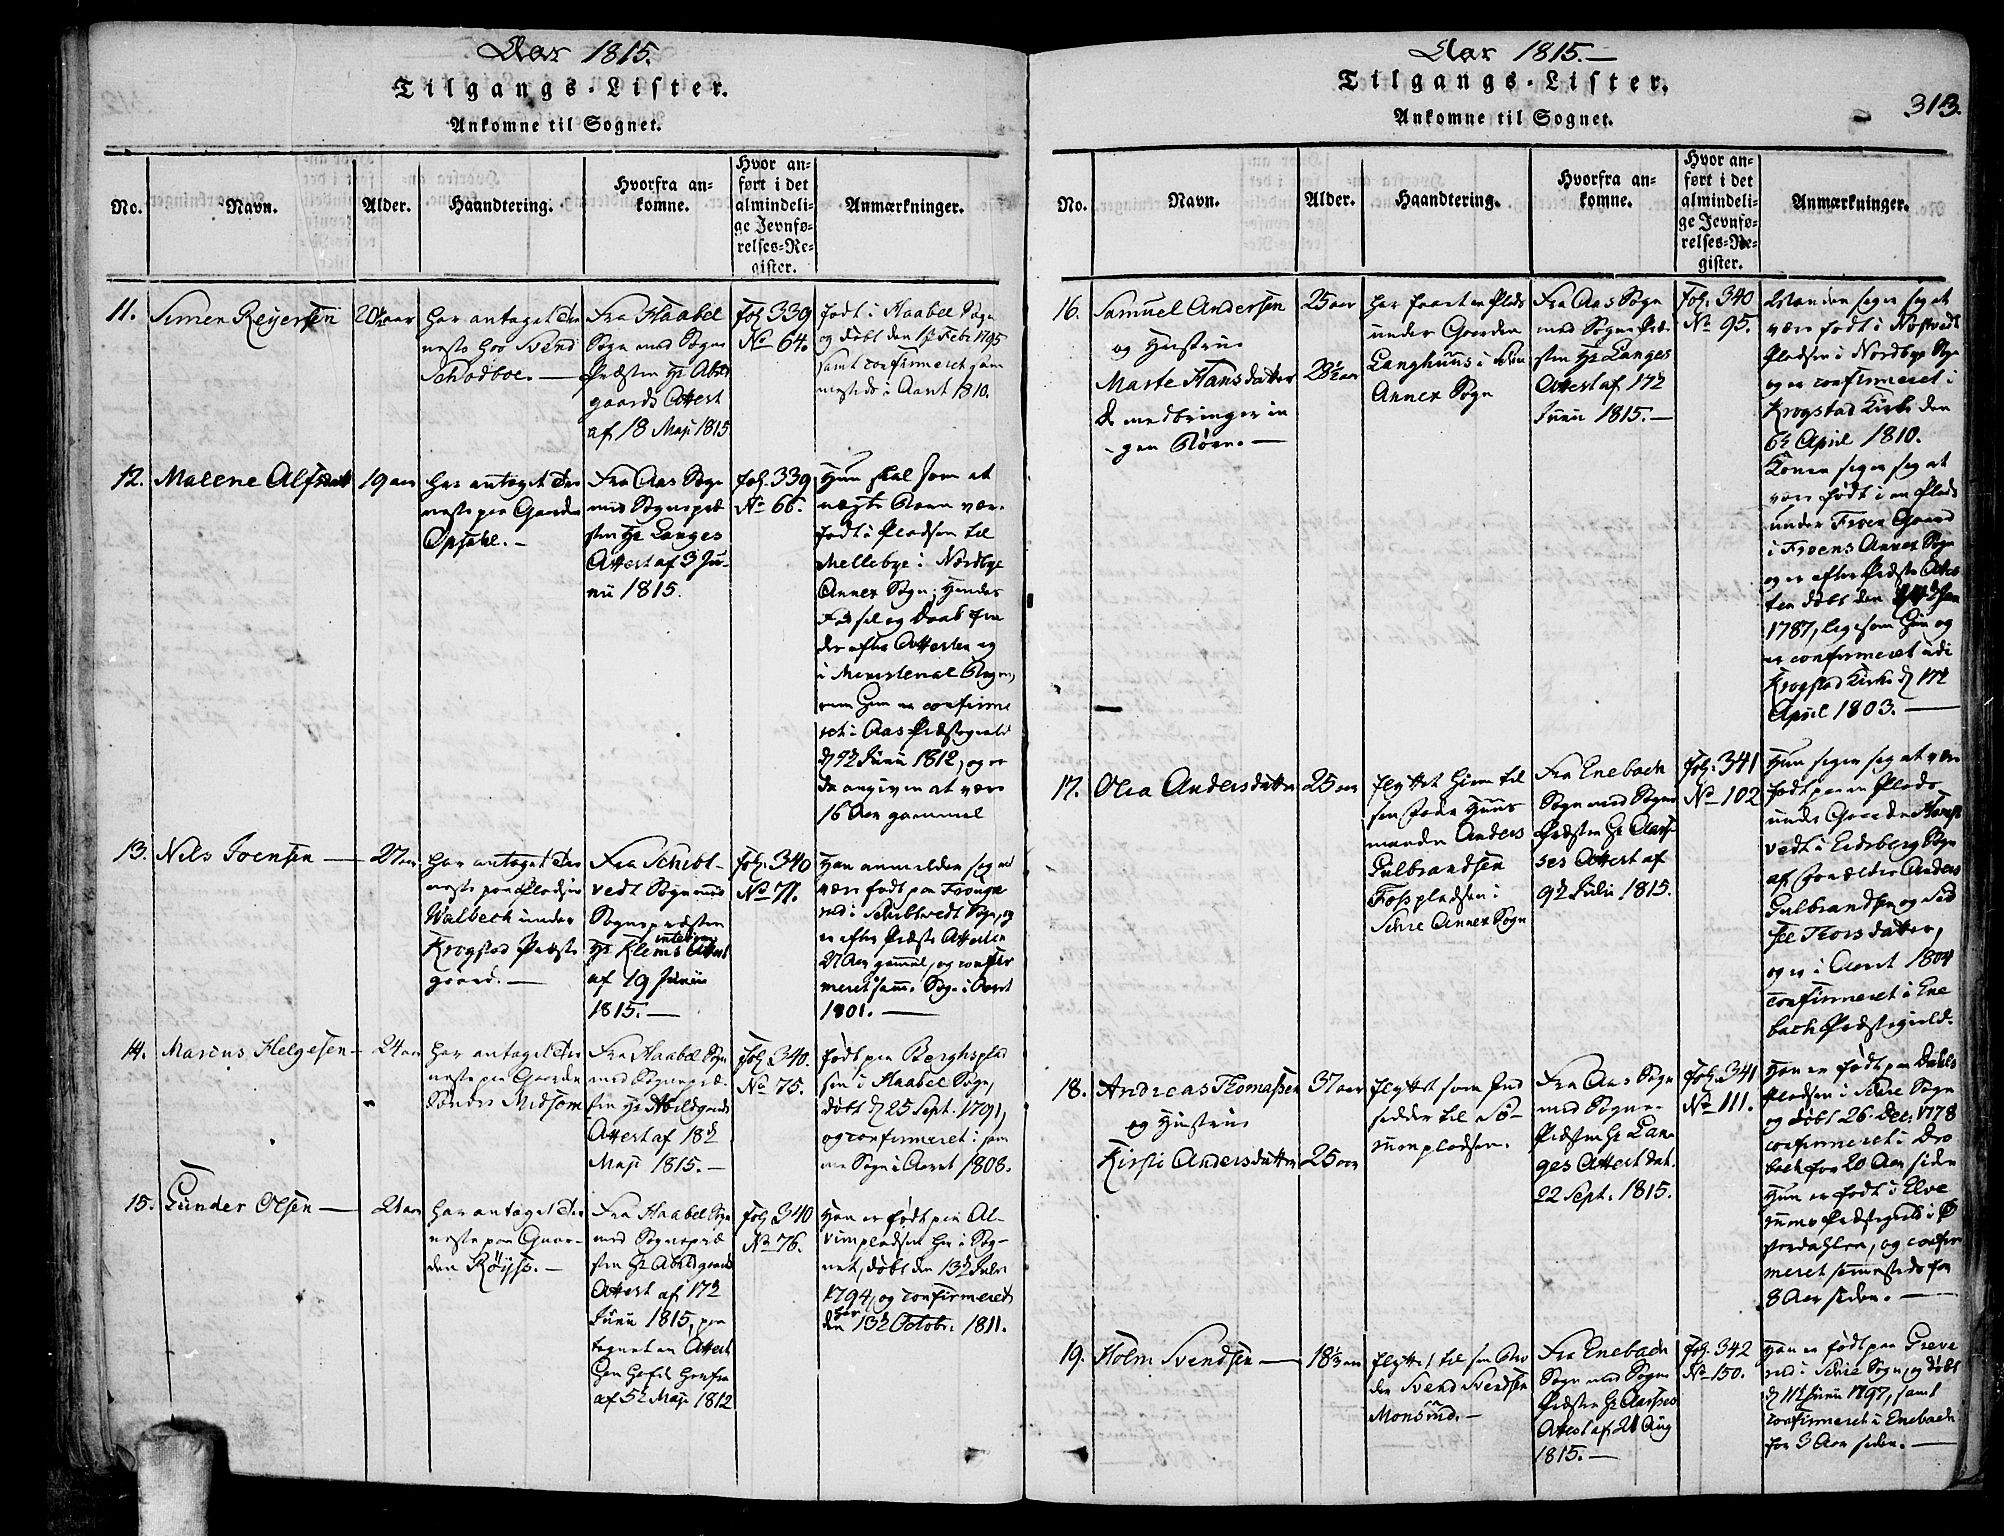 Aar 1815.
Tilgangs-Lister.
Ankomne til Sognet.
No.
Navn.
Alder.
Haandtering.
Hvorfra an-
komne.
Hvor an-
ført i det
almindeli-
ge Jevnfø-
relses-Re-
gister.
Anmærkninger.
11.
Simen Reyersen
20½ aar
har antaget Tie
neste hos Svend
Schodboe. —
Fra Haabøl
Sogn med Sogne
Præsten Hr
gaards Attest
af 18 Maji 1815
Fol. 339
No 64.
født i Haabøl Sogn
og døbt den Febr 1795
samt confirmeret sam
mesteds i Aaret 1810.
12.
Malene Alfsdatt
19 aar
har antaget Tie
neste paa Gaarden
Opsahl. —
Fra Aas Sogn
med Sognepræ
sten Hr Langes
Attest af 3 Ju-
nii 1815.
Fol. 339
No 66.
Hun skal som et
uægte Barn være
født i Pladsen til
Mellebye i Nordbye
Annex Sogn; Hendes
Fødsel og Daab fin
des efter Attesten ej
i Ministerial Bogen,
men hun er confirme
ret i Aas Præstegield
d 12 Junii 1812, og er
da angiven at være
16 Aar gammel
13.
Nils Joensen —
27 aar
har antaget Tie
neste paa Pladsen
Walbech under
Krogstad Præste
gaard. —
Fra Schibt-
vedt Sogn med
Sognepræsten
Hr Klems Attest
af 19 Junii
1815. —
Fol. 340
No 71.
Han anmelder sig at
være født paa
i Schibtvedt Sogn, og
er efter Præstens Attest
27 Aar gammel, og confir
meret samme Sogn i Aaret
1801. —
14.
Marcus Helgesen —
24 aar
har antaget Tie
neste paa Gaarden
Søndre Midsem
Fra Haabøl Sogn
med Sognepræ-
sten Hr Abildgaards
Attest af 18d
Maji 1815. —
Fol. 340.
No 75.
født paa Berghsplad
sen i Haabøl Sogn,
døbt d 25 Sept. 1791,
og confirmeret i sam
me Sogn i Aaret 1808.
15.
Gunder Olsen —
21 aar
har antaget Tie
neste paa Gaar-
den Røyse. —
Fra Haabøl Sogn
med Sognepræ
sten Hr Abildgaards
Attest af 17d
Junii 1815, paa
tegnet en Attest
han havde herfra
af 5d Maji 1812
Fol. 340
No 76.
Han er født paa Al-
vimpladsen her i Sog-
net, døbt den 13d Julii
1794, og confirmeret
her
den 13d Octobr. 1811.
Aar 1815. —
Tilgangs-Lister.
Ankomne til Sognet.
313.
No.
Navn.
Alder.
Haandtering.
Hvorfra an-
komne.
Hvor an-
ført i det
almindeli-
ge Jevnfø-
relses-Re-
gister.
Anmærkninger.
16.
Samuel Andersen
og Hustrue
Marte Hansdatter
De medbringer in
gen Børn. —
25 aar
28½ aar
har faaet en Plads
under Gaarden
Langhuus i
Annex Sogn
Fra Aas Sogn
med Sogne Præ
sten Hr Langes
Attest af 17d
Junii 1815. —
Fol. 340
No 95.
Manden siger sig at
være født i
Pladsen i Nordbye Sogn
og er confirmeret i
Krogstad Kirke den
6d April 1810.
Konen siger sig at
være født i en Plads
under Froen Gaard
i Froens Annex Sogn
og er efter Præstens Attes
ten døbt den
1787, ligesom hun og
er confirmeret udi
Krogstad Kirke d 17d
April 1803. —
17.
Olia Andersdatter
25 aar
flyttet hiem til
sin Fader Huus
manden Anders
Gulbrandsen
Fosspladsen i
Schie Annex Sogn
Fra Enebach
Sogn med Sogne
Præsten Hr Aas-
ses Attest af
9d Julii 1815.
Fol. 341
No 102
Hun siger sig at være
født paa en Plads
under Gaarden
vedt i Eidsberg Sogn
af Forældre Anders
Gulbrandsen og Sid
sel Thorsdatter,
og er i Aaret 1804
confirmeret i Ene
bach Præstegield.
18.
Andreas Thomassen
og Hustrue
Kirsti Andersdatter
37 aar
25 aar
flyttet som Ind
sidder til Si-
monpladsen.
Fra Aas Sogn
med Sogne-
Præsten Hr Lan-
ges Attest dat.
22 Sept. 1815.
Fol. 341
No 111.
Han er født paa Dahls
Pladsen i Schie Sogn
og døbt 26. Dec. 1778
confirmeret i Drø
bach for 20 Aar siden
Hun er født i Elve
rums Præstegield i Ø
sterdahlen, og confir
meret sammesteds for
8 Aar siden. —
19.
Holm Svendsen —
18⅓ aar
flyttet til sin Bro
der Svend Svendsen
Monsrud. —
Fra Enebach
Sogn med Sogne
Præsten Hr Aasses
Attest af 21 Aug
1815. —
Fol. 342
No 150.
Han er født paa Greve
rud i Schie Sogn, og døbt
d 11d Junii 1797, samt
confirmeret i Enebach
for 3 Aar siden. —